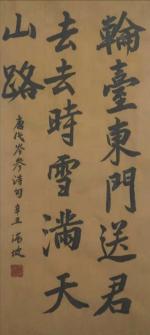 輪臺東門送君
去去時雪滿天
山路
唐代岑参詩句 辛丑